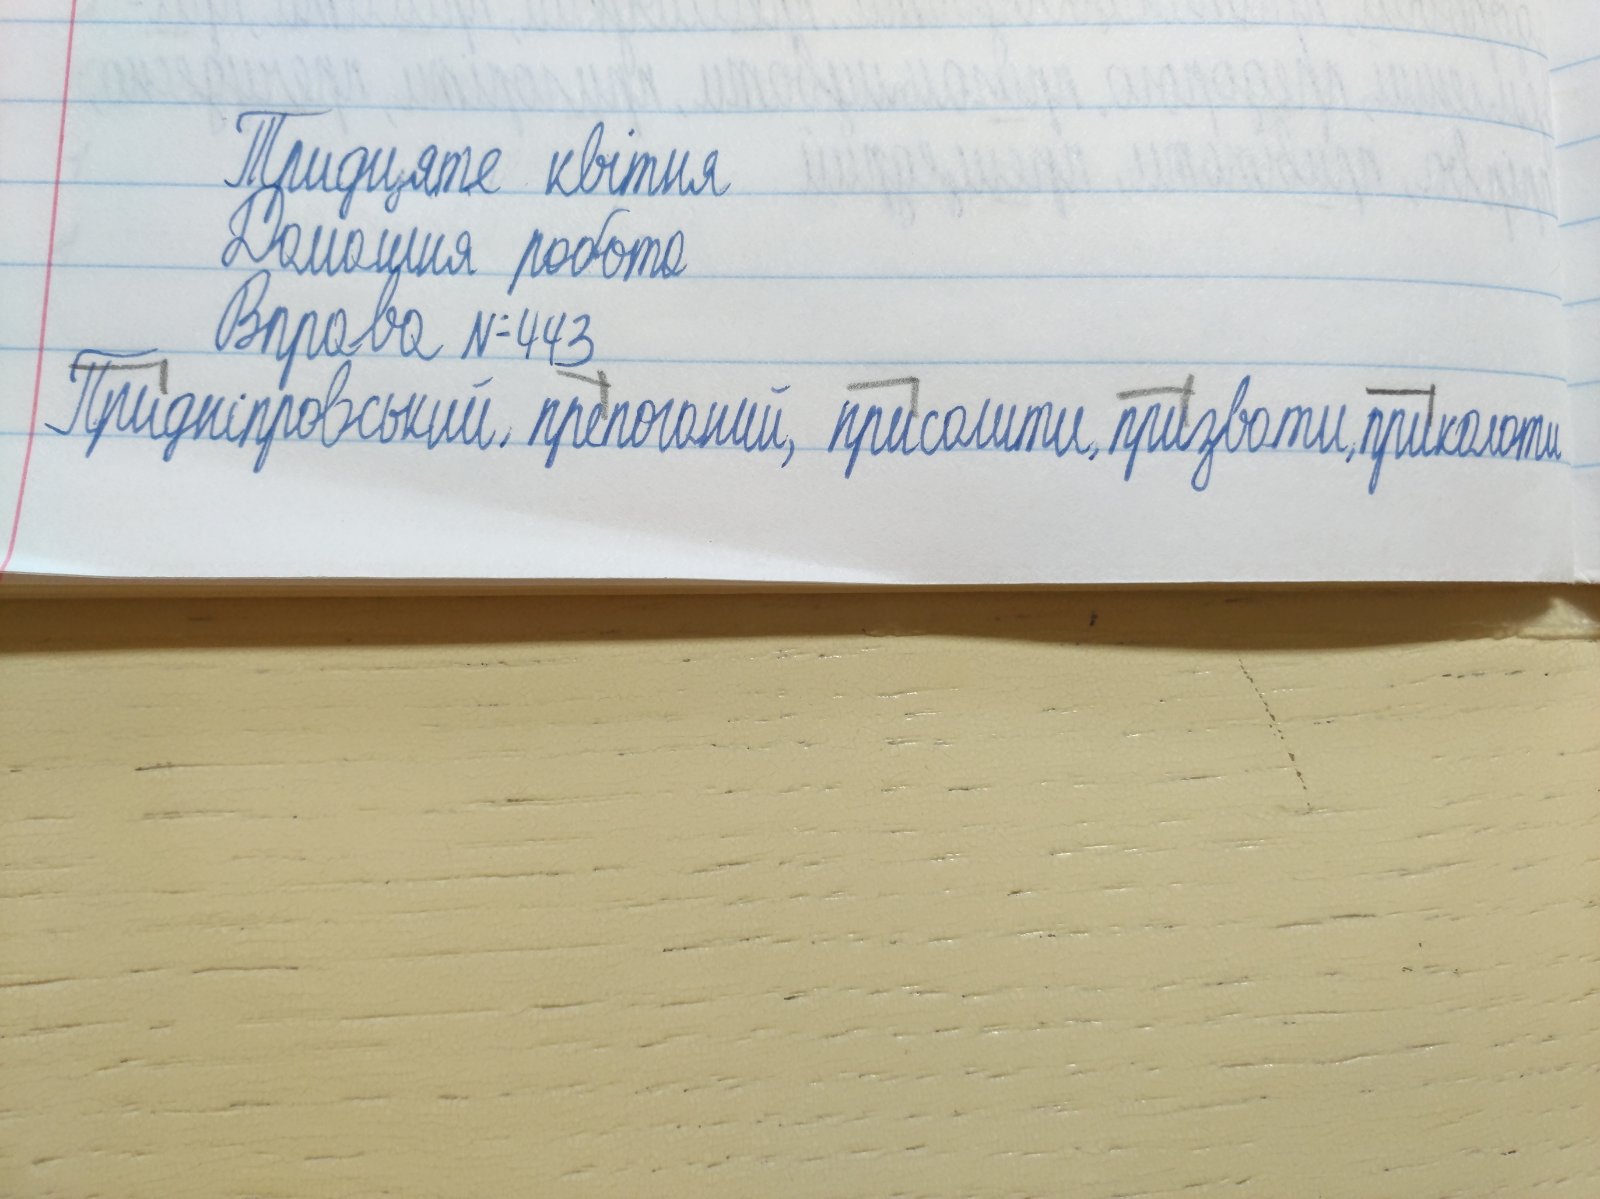 Тридцяте квітня
Домашня робота
Вправа №443
Придніпровський, препоганий, присолити, призвати, приколоти